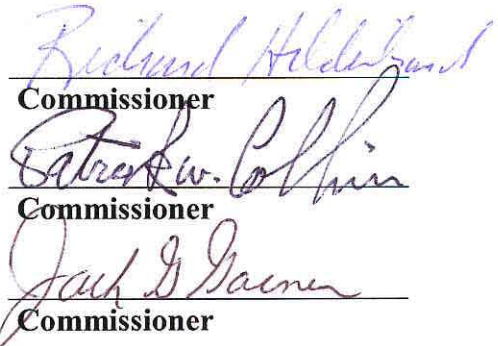 Richard Hildenbrand
Commissioner
Patrick W. Collins
Commissioner
Jack G
Commissioner